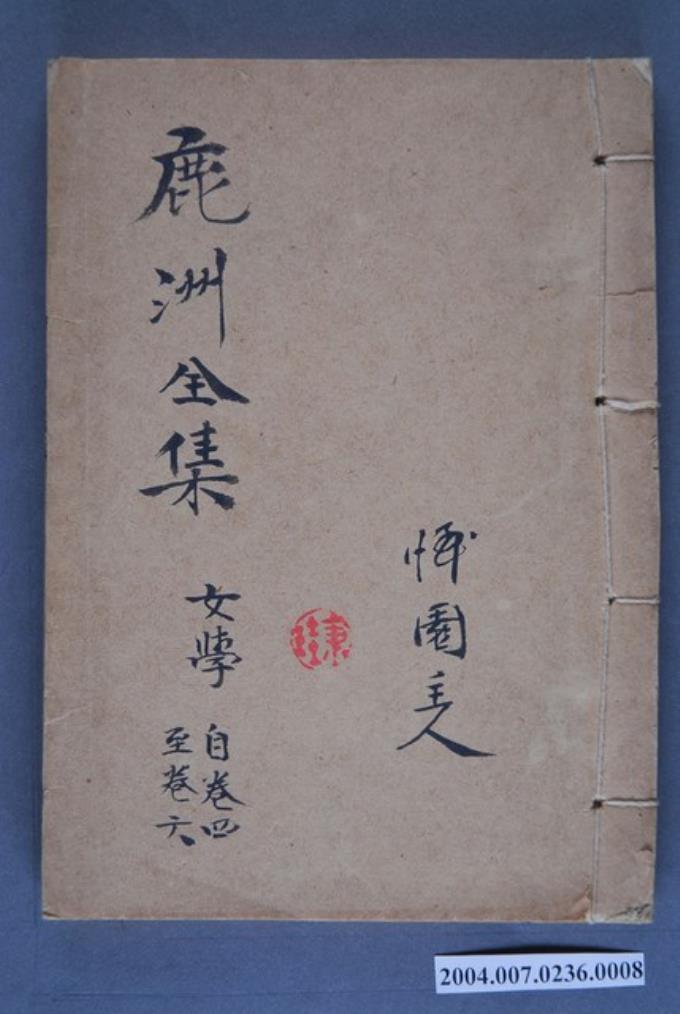 鹿洲全集
女學
自卷四
至卷六
園主人
2004.007.0236.0008